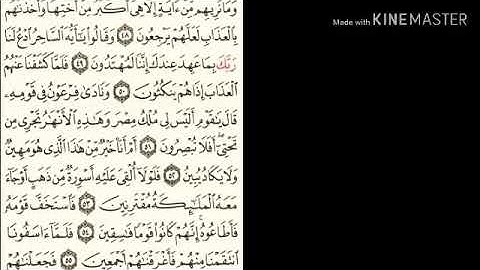 وَمَا نُرِيهِم مِّنْ ءَايَةٍ إِلَّا هِىَ أَكْبَرُ مِنْ أُخْتِهَا وَأَخَذْنَٰهُم
بِٱلْعَذَابِ لَعَلَّهُمْ يَرْجِعُونَ ٤٨ وَقَالُوا۟ يَٰٓأَيُّهَ ٱلسَّاحِرُ ٱدْعُ لَنَا
رَبَّكَ بِمَا عَهِدَ عِندَكَ إِنَّنَا لَمُهْتَدُونَ ٤٩ فَلَمَّا كَشَفْنَا عَنْهُمُ
ٱلْعَذَابَ إِذَا هُمْ يَنكُثُونَ ٥٠ وَنَادَىٰ فِرْعَوْنُ فِى قَوْمِهِۦ
قَالَ يَٰقَوْمِ أَلَيْسَ لِى مُلْكُ مِصْرَ وَهَٰذِهِ ٱلْأَنْهَٰرُ تَجْرِى مِن
تَحْتِىٓ أَفَلَا تُبْصِرُونَ ٥١ أَمْ أَنَا۠ خَيْرٌ مِّنْ هَٰذَا ٱلَّذِى هُوَ مَهِينٌ
وَلَا يَكَادُ يُبِينُ ٥٢ فَلَوْلَآ أُلْقِىَ عَلَيْهِ أَسْوِرَةٌ مِّن ذَهَبٍ أَوْ جَآءَ
مَعَهُ ٱلْمَلَٰٓئِكَةُ مُقْتَرِنِينَ ٥٣ فَٱسْتَخَفَّ قَوْمَهُۥ
فَأَطَاعُوهُ إِنَّهُمْ كَانُوا۟ قَوْمًا فَٰسِقِينَ ٥٤ فَلَمَّآ ءَاسَفُونَا
ٱنتَقَمْنَا مِنْهُمْ فَأَغْرَقْنَٰهُمْ أَجْمَعِينَ ٥٥ فَجَعَلْنَٰهُمْ
Made with KINEMASTER